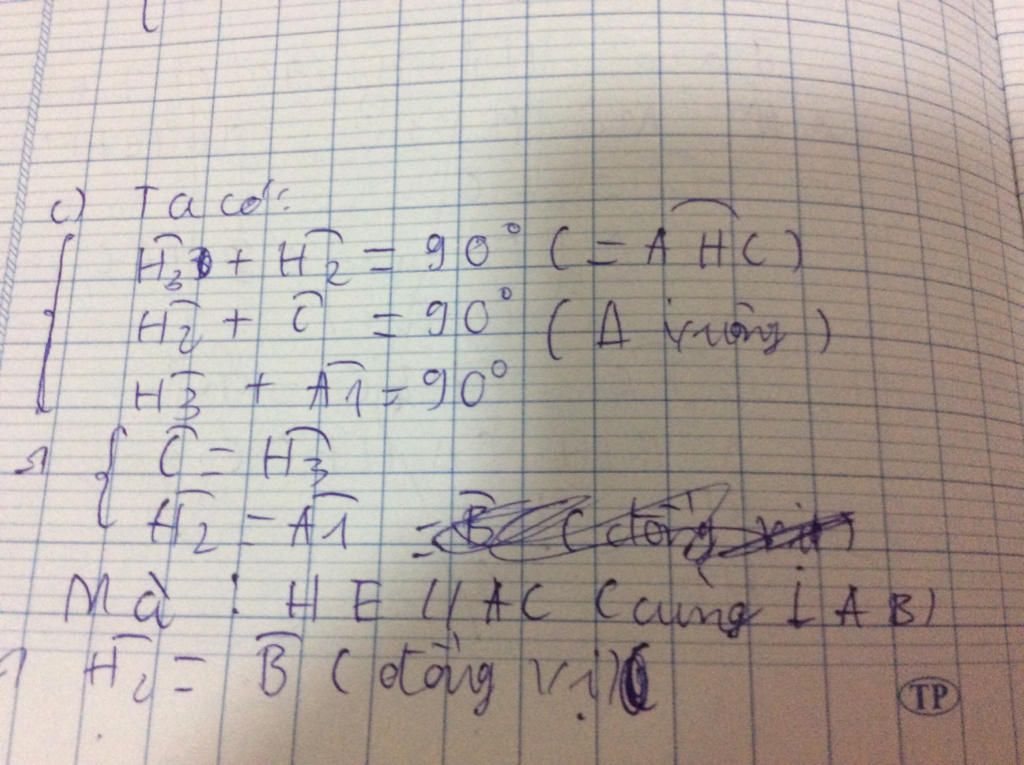 c) Ta có:
Ĥ3 + Ĥ2 = 90° (= AHC)
Ĥ2 + Ĉ = 90° (Δ vuông)
Ĥ3 + Â1 = 90°
=> { Ĉ = Ĥ3
Ĥ2 = Â1
Mà : HE // AC (cùng ⊥ AB)
Ĥ2 = B̂ (đồng vị)
TP